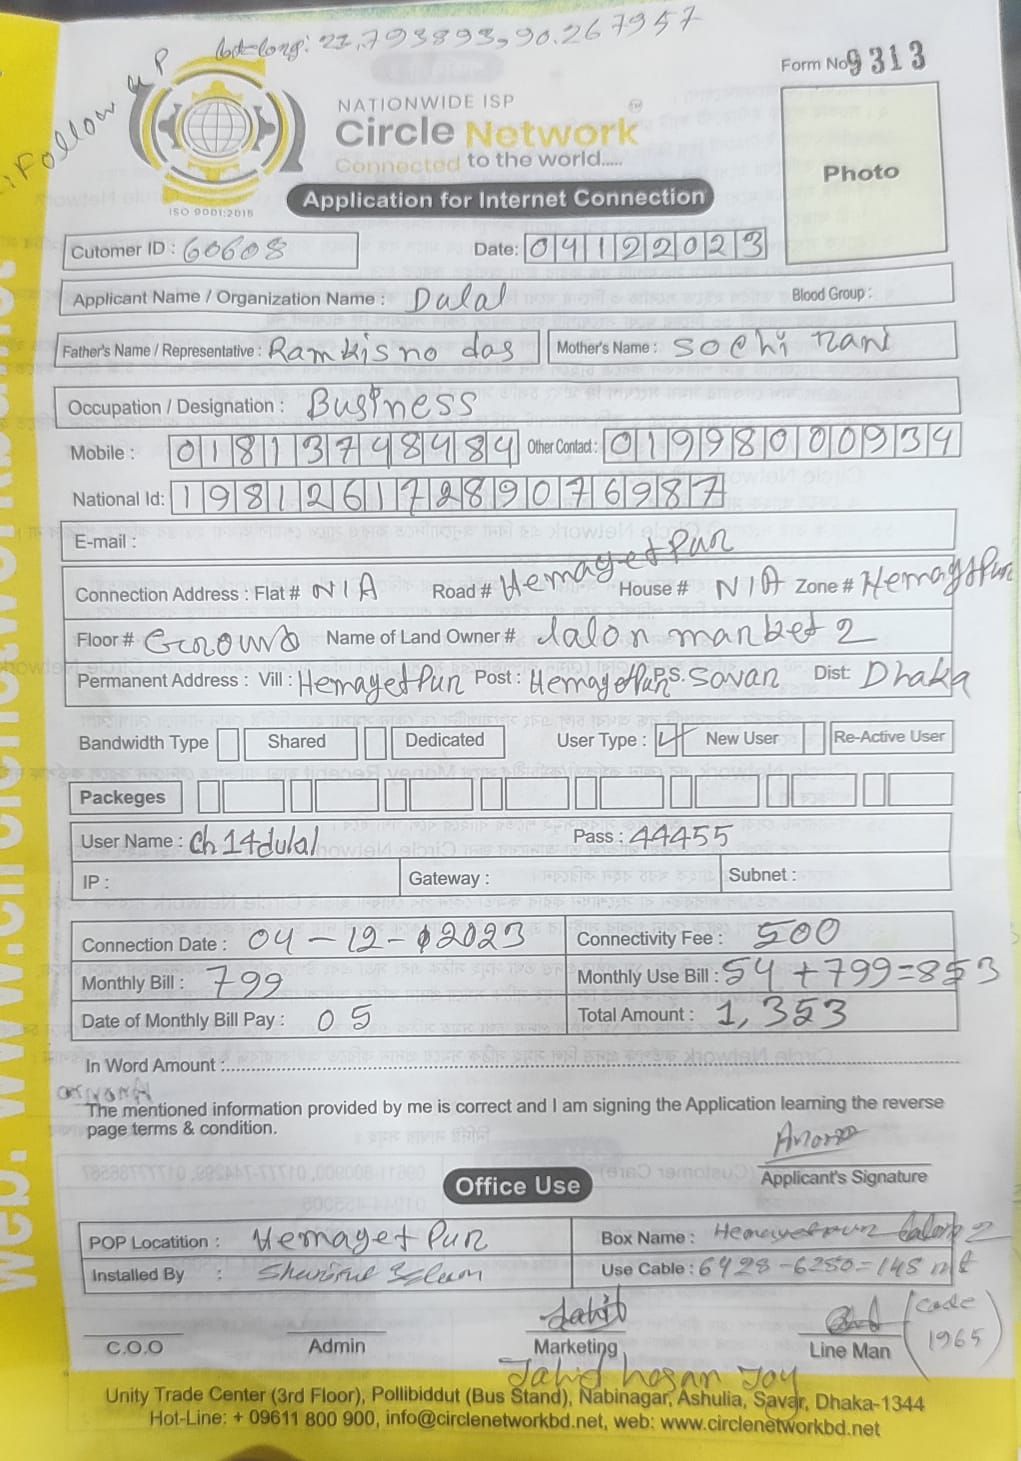 lat-long: 23,793893,90.267957
Follow up
Form No 9313
NATIONWIDE ISP
Circle Network
Connected to the world.....
ISO 9001:2015
Application for Internet Connection
Photo
Cutomer ID : 60608
Date: 04122023
Applicant Name / Organization Name : Dulal
Blood Group :
Father's Name / Representative : Ramkisno das
Mother's Name : Sochi Rani
Occupation / Designation : Business
Mobile : 01813748484 Other Contact : 01998000934
National Id: 19812617289076987
E-mail :
Connection Address : Flat # N/A Road # HemayetPur House # N/A Zone # HemayetPur
Floor # Ground Name of Land Owner # Jalon market 2
Permanent Address : Vill : HemayetPur Post : HemayetPur P.S. Savar Dist: Dhaka
Bandwidth Type Shared Dedicated User Type : New User Re-Active User
Packeges
User Name : Ch14dulal Pass : 44455
IP : Gateway : Subnet :
Connection Date : 04-12-2023 Connectivity Fee : 500
Monthly Bill : 799 Monthly Use Bill : 54+799=853
Date of Monthly Bill Pay : 05 Total Amount : 1,353
In Word Amount :
The mentioned information provided by me is correct and I am signing the Application learning the reverse
page terms & condition.
Applicant's Signature
Office Use
POP Locatition : Hemayet Pur Box Name : Hemayetpur 2
Installed By : Shariful Islam Use Cable : 6428-6280=148 mt
C.O.O Admin Marketing Line Man (Code 1965)
Jahid hasan Joy
Unity Trade Center (3rd Floor), Pollibiddut (Bus Stand), Nabinagar, Ashulia, Savar, Dhaka-1344
Hot-Line: + 09611 800 900, info@circlenetworkbd.net, web: www.circlenetworkbd.net